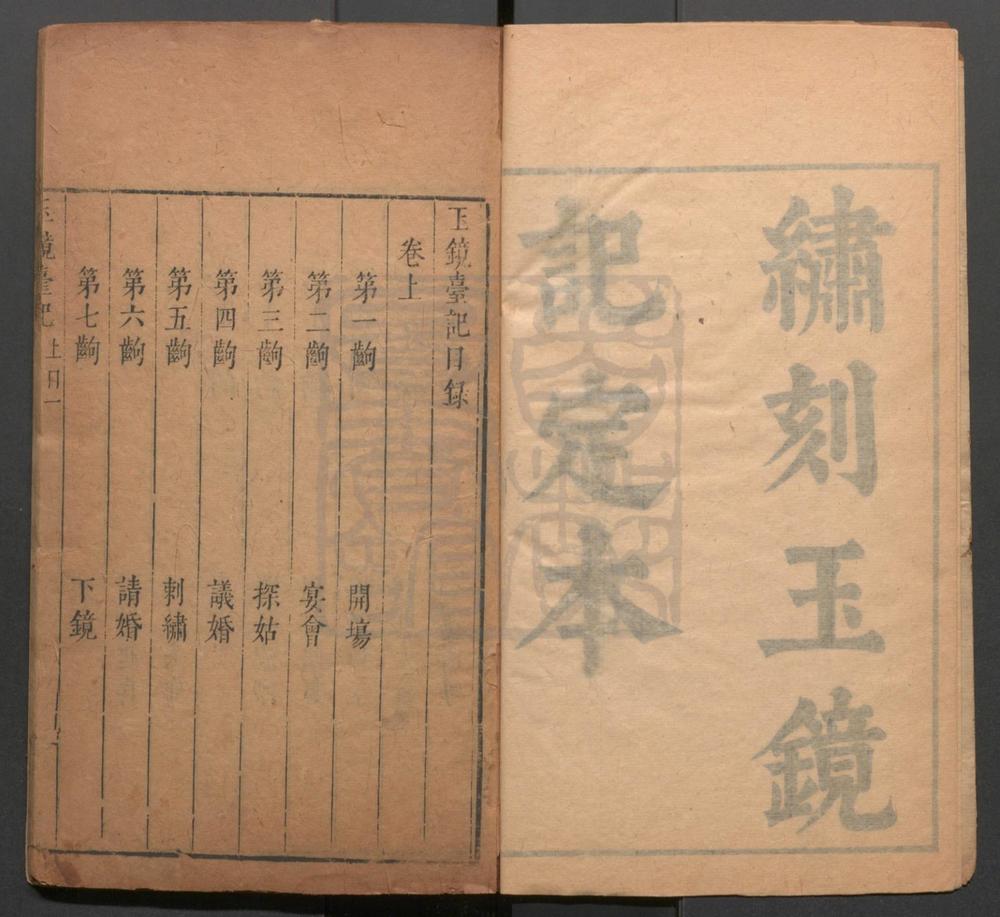 繡刻玉鏡
記定本
玉鏡臺記目録
卷上
第一齣 開場
第二齣 宴會
第三齣 探姑
第四齣 議婚
第五齣 刺繡
第六齣 請婚
第七齣 下鏡
玉鏡臺記 上目一